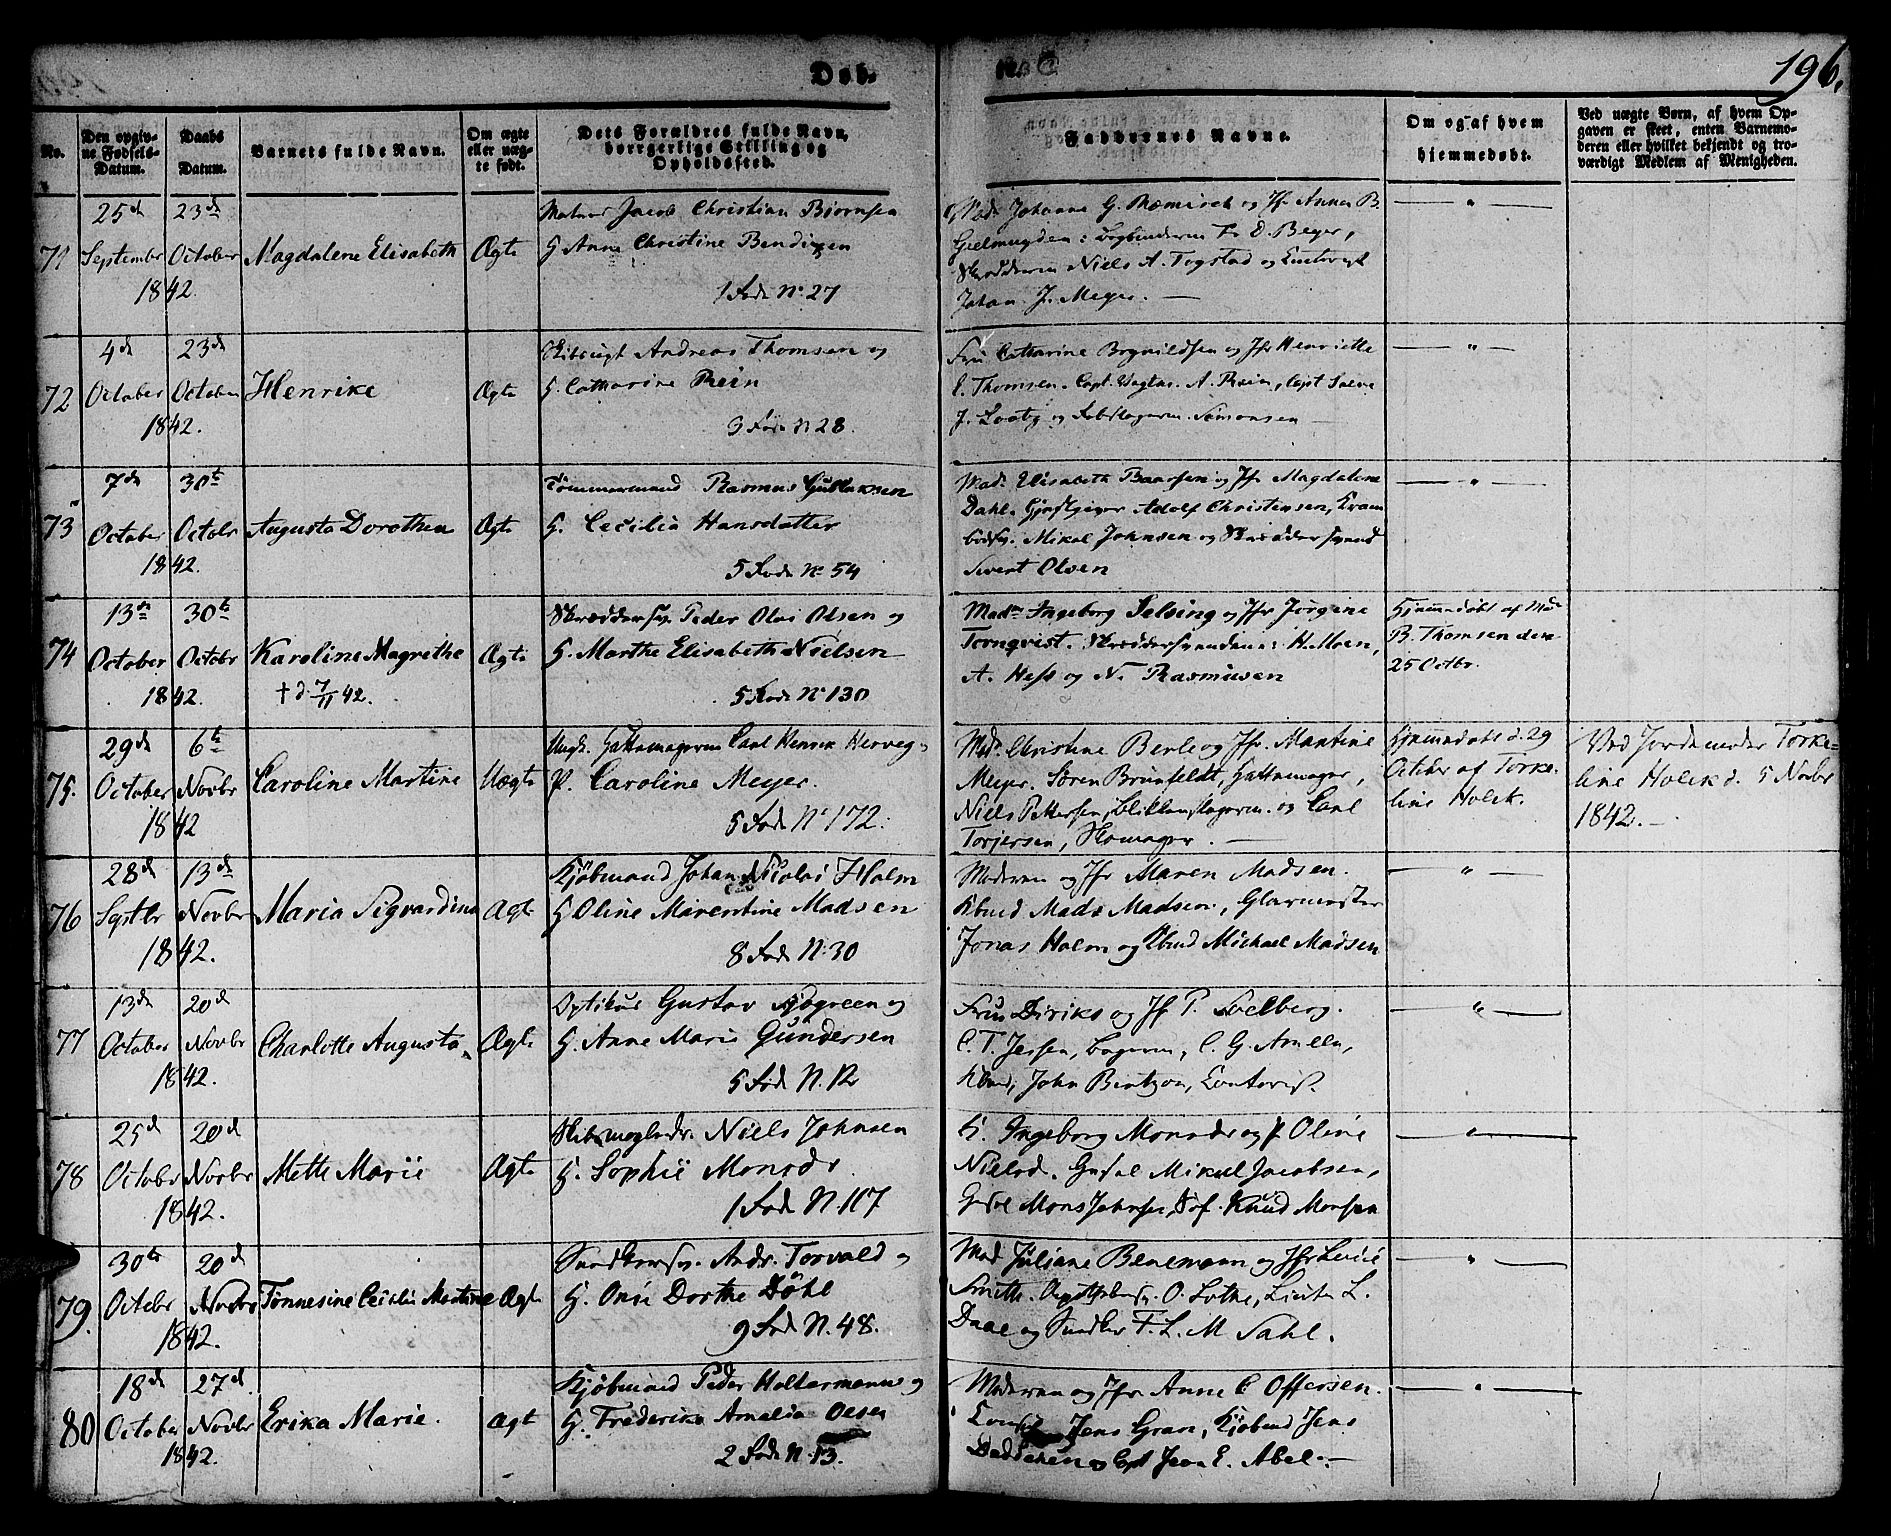 Døb.
196.
No.
Den opgiv-
ne Fødsels-
Datum.
Daabs
Datum.
Barnets fulde Navn.
Om ægte
eller uæg-
te født.
Dets Forældres fulde Navn,
borgerlige Stilling og
Opholdssted.
Faddernes Navne.
Om og af hvem
hjemmedøbt.
Ved uægte Børn, af hvem Op-
gaven er skeet, enten Barnemo-
deren eller hvilket bekjendt og tro-
værdigt Medlem af Menigheden.
71
25d September 1842.
23d October
Magdalene Elisabeth
Ægte
Jacob Christian Biørnsen
H Anne Christine Bendixen
1 Fode No 27
Mad. Johanne G. og Jfr Anna B.
Bogbinderne Fr D. Beyer,
Niels A. Togstad og
Johan J. Meyer. —
— " —
72
4d October 1842.
23d October
Henrike
Ægte
Andreas Thomsen og
H. Catharine Rein
3 Fode N 28
Fru Catharine Brynildsen og Jfr Henriette
E. Thomsen. Capt. A. Rein, Capt
J. og Simonsen
— " —
73
7d October 1842.
30te Octobr
Augusta Dorothea
Ægte
Tømmermand Rasmus Gullaksen
H. Cecilia Hansdatter
5 Fode No 54
Mad. Elisabeth Baarsen og Jfr Magdalene
Dahl. Gjæstgiver Adolf Christensen, Kram-
bodsv. Mikal Johnsen og Skræddersvend
Sivert Olsen
— " —
74
13de October 1842.
30te Octobr
Karoline Magrethe
† d 7/11 42.
Ægte
Skræddersv. Peder Olai Olsen og
H. Marthe Elisabeth Nielsen
5 Fode No 130
Madm Ingeborg Selsing og Jfr Jørgine
Tornqvist. Skræddersvendene: H. Moen,
A. Hess og N. Rasmusen
Hjemmedøbt af
B. Thomsen den
25 Octbr.
75.
29d October 1842
6te Novbr
Caroline Martine
Uægte
Ungk. Hattemagersv. Carl Henrik Herveg
P. Caroline Meyer.
5 Fode No 172.
Mad. Christine Berle og Jfr. Martine
Meyer. Søren Brunfeldt, Hattemager,
Niels Pettersen, Blikkenslagersv. og Carl
Torjersen, Skomager. —
Hjemmedøbt d. 29
October af Torke-
line Holck.
Ved Jordemoder Torke-
line Holck d. 5 Novbr
1842. —
76
28d Septbr 1842.
13de Novbr
Maria Sigvardine
Ægte
Kjøbmand Johan Nicolai Holm
H Oline Marentine Madsen
8 Fode N. 30
Moderen og Jfr Maren Madsen.
Kbmd Mads Madsen, Glarmester
Jonas Holm og Kbmd Michael Madsen
— " —
77
13de October 1842.
20d Novbr
Charlotte Augusta
Ægte
Optikus Gustav Sjøgreen og
H. Anne Marie Gundersen
5 Fod N. 12
Fru Diriks og Jfr P. Soelberg.
C. T. Jessen, Bagersv., C. G. Amelln,
Kbmd, John Bentzon, Contorist.
— " —
78
25d October 1842.
20d Novbr
Mette Marie
Ægte
Niels Johnsen
H. Sophie Monsdr
1 Fode N. 117
H. Ingeborg Monsdr og P Oline
Nielsd. Mikal Jacobsen,
Mons Johnsen, Knud Monsen
— " —
79.
30te Octobr 1842.
20d Novbr
Tønnesine Cecilie Martine
Ægte
Andr. Torvald
H. Dorthe Døhl
9 Fode N. 48.
Mad Juliane Benemann og Jfr
Smith. O. Lothe, L.
Daae og F. L. M Dahl.
— " —
80
18d October 1842.
27d Novbr
Erika Marie.
Ægt
Kjøbmand Peder Holtermann og
H. Frederike Amalia Olsen
2 Fode N. 13.
Moderen og Jfr Anne C Offersen.
Consul Jens Gran, Kjøbmd Jens
Deddeken og Capt Jens E. Abel. —
— " —